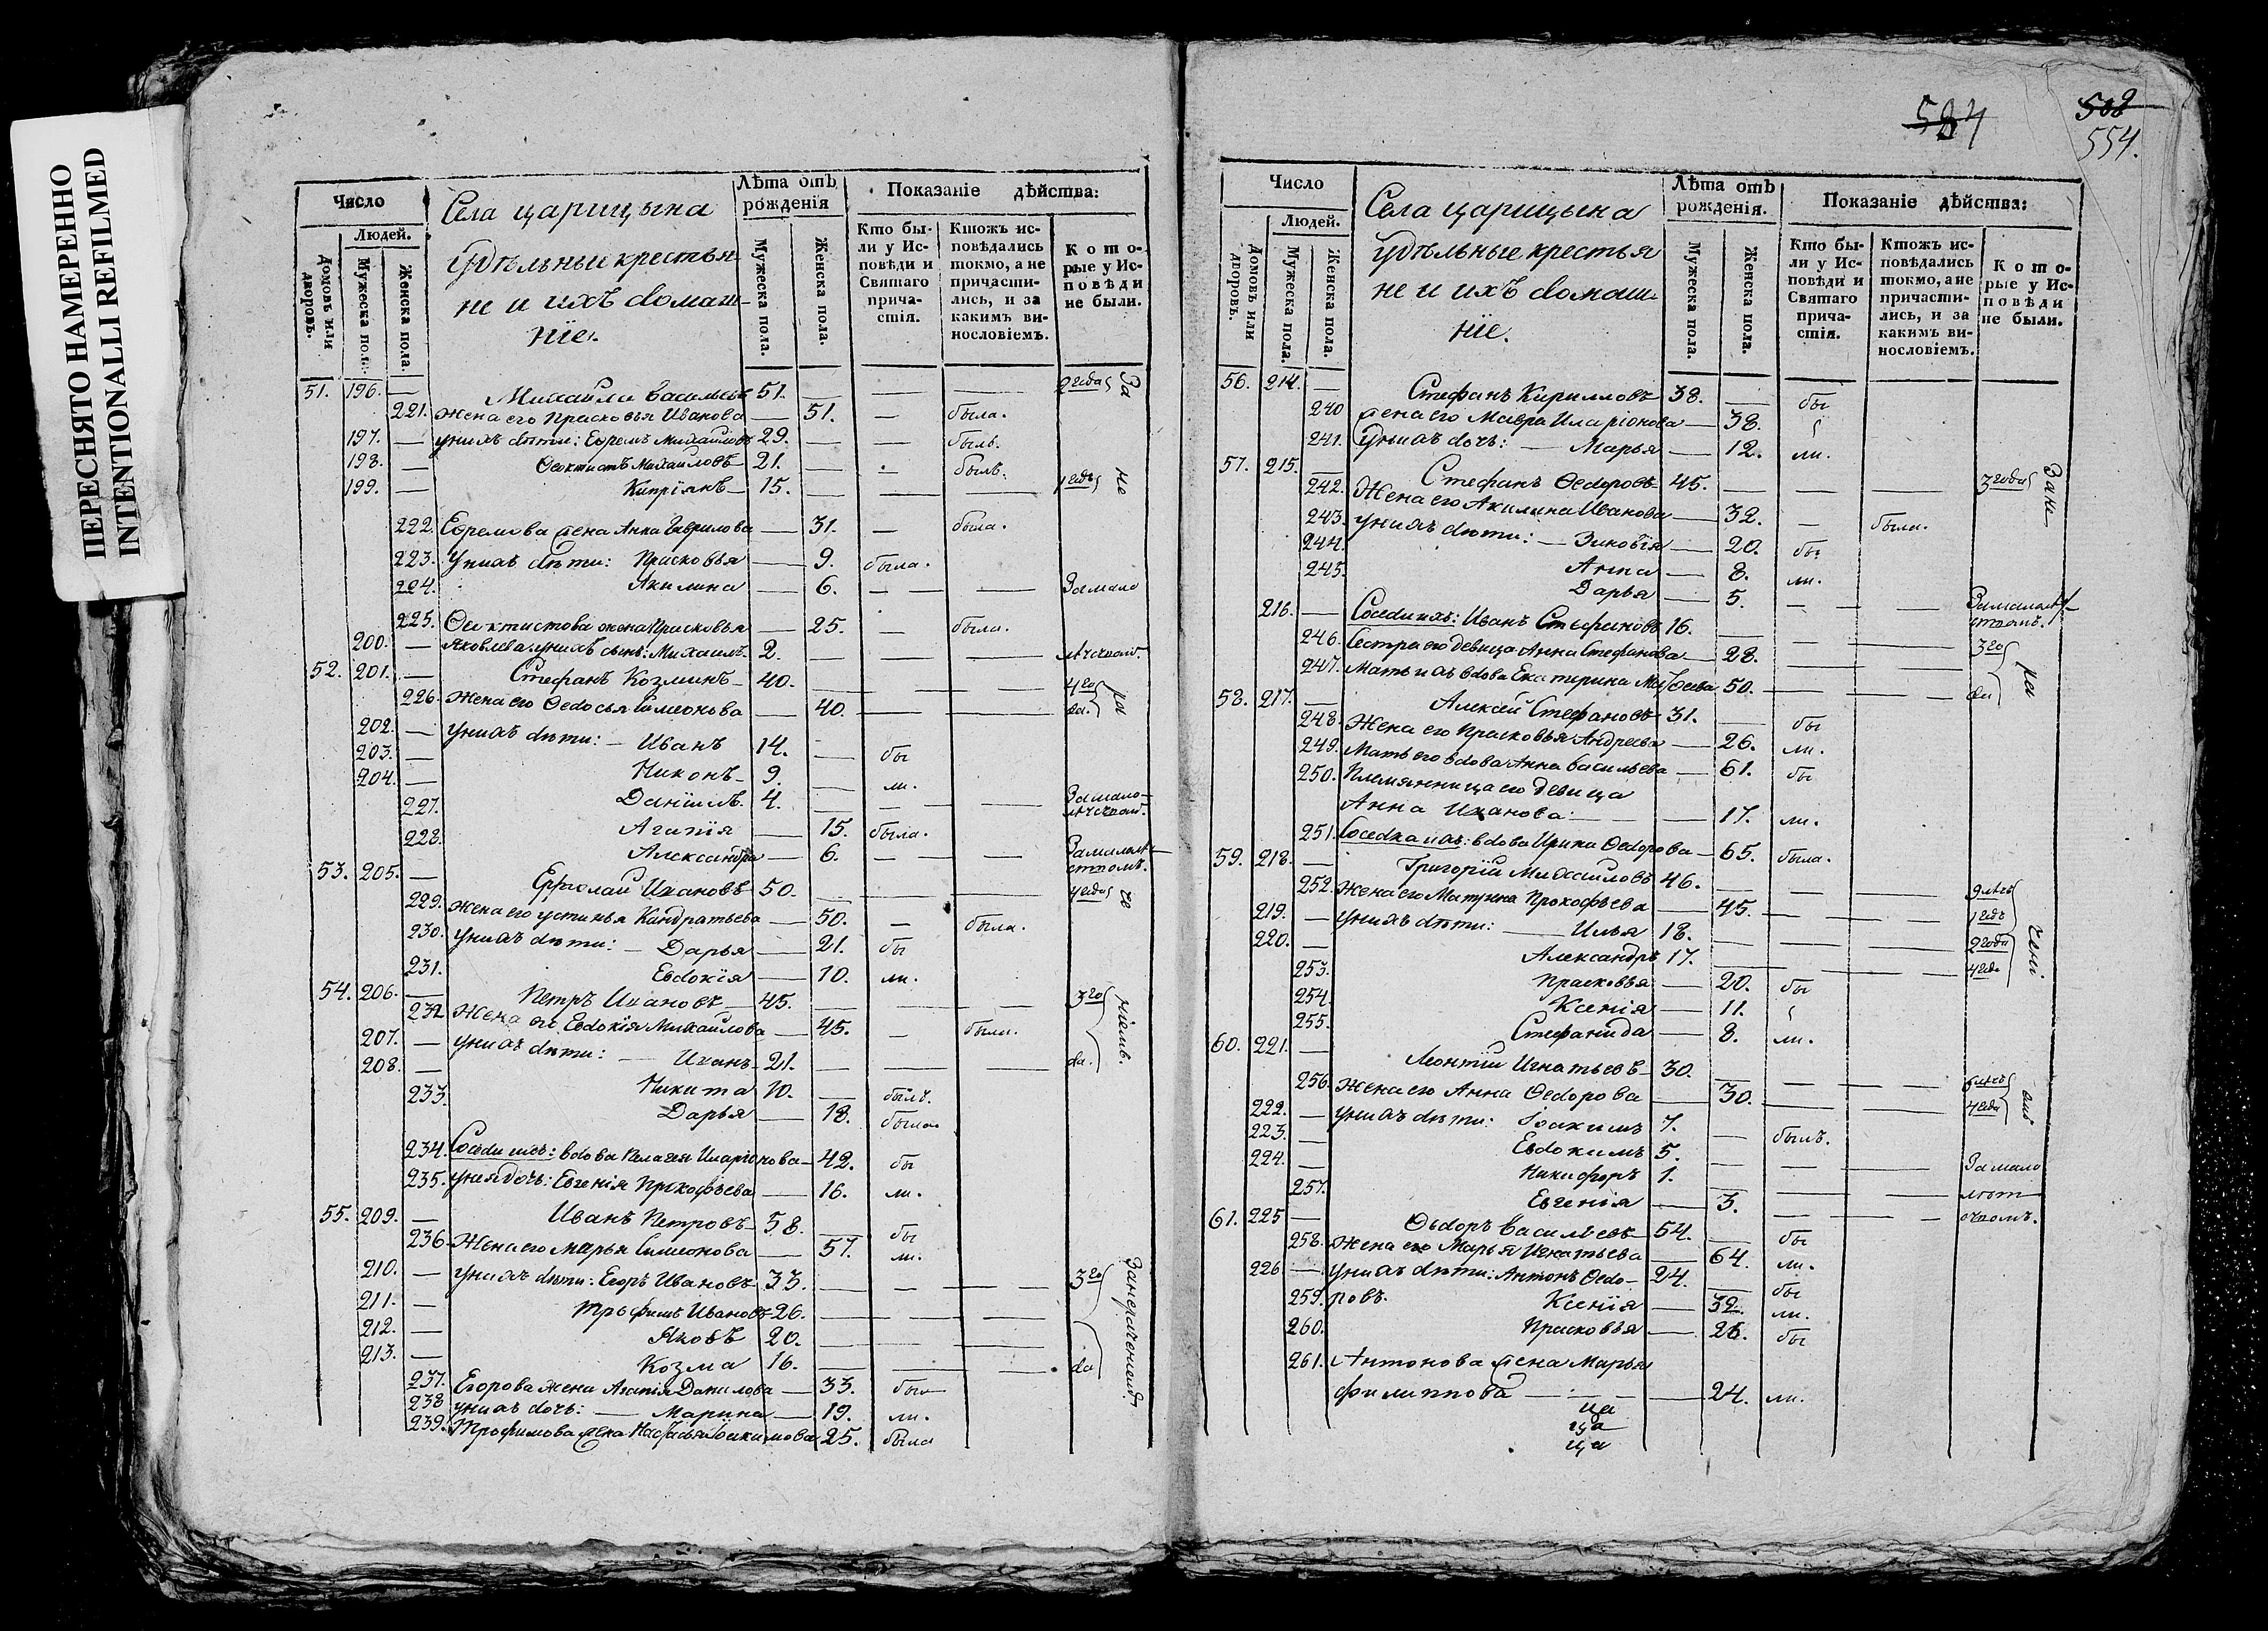 ПЕРЕСНЯТО НАМЕРЕННО
INTENTIONALLI REFILMED
Число
Людей.
Домовъ или дворовъ.
Мужеска пола.
Женска пола.
Села царицына
удѣльные крестья
не и ихъ домаш-
ніе.
Лѣта отъ рождения
Мужеска пола.
Женска пола.
Показаніе дѣйства:
Кто были у Исповѣди и Святаго причастія.
Ктожъ исповѣдались токмо, а не причастились, и за какимъ винословіемъ.
Которые у Исповѣди не были.
51. 196. — Михайла Васильевъ 51. — — — 2 года За
221. Жена его Прасковья Иванова — 51. — была.
197. — у нихъ дѣти: Ефремъ Михайловъ 29. — — былъ.
198. — Феоктистъ Михайловъ 21. — былъ.
199. — Кипріянъ 15. — — — 1 годъ не
222. Ефремова жена Анна Гаврилова — 31. — была.
223. у нихъ дѣти: Прасковья — 9. была.
224. Акилина — 6. — — — За мало
225. Феоктистова жена Прасковья — 25. — была.
200. — Яковлева у нихъ сынъ: Михаилъ 2. — — — лѣтствомъ.
52. 201. — Стефанъ Козминъ 40. — — — 4 го ра
226. Жена его Федосья Симеонова — 40. — — — да.
202. — у нихъ дѣти: — Иванъ 14. — бы
203. — Никонъ 9. — ли.
204. — Даніилъ 4. — — — За мало
227. Агапія — 15. была. лѣтствомъ.
228. Александра — 6. — — — За малолѣтствомъ.
53. 205. — Ермолай Ивановъ 50. — — — 4 года че
229. Жена его Устинья Кандратьева — 50. — была.
230. у нихъ дѣти: — Дарья — 21. бы
231. Евдокія — 10. ли.
54. 206. — Петръ Ивановъ 45. — — — 3 го ніемъ.
232 Жена его Евдокія Михайлова — 45. — была.
207. — у нихъ дѣти: — Иванъ 21. — — — да.
208. — Никита 10. — былъ.
233. Дарья — 18. была
234. Соседи ихъ: вдова Пелагея Иларіонова — 42. бы
235. у нея дочь: Евгенія Прокофьева — 16. ли.
55. 209. — Иванъ Петровъ 58. — бы
236. Жена его Марья Симеонова — 57. ли.
210. — у нихъ дѣти: Егоръ Ивановъ 33. — — — 3 го
211. — Трофимъ Ивановъ 26. — — —
212. — Яковъ 20. — — —
213. — Козма 16. — — — да
237. Егорова жена Агапія Данилова — 33. бы
238 у нихъ дочь: — Марина — 19. ли.
239. Трофимова жена Настасья Іоакимова 25. была
584
508
554.
Число
Людей.
Домовъ или дворовъ.
Мужеска пола.
Женска пола.
Села царицына
удѣльные крестья
не и ихъ домаш
ніе.
Лѣта отъ рождения.
Мужеска пола.
Женска пола.
Показаніе дѣйства:
Кто были у Исповѣди и Святаго причастія.
Ктожъ исповѣдались токмо, а не причастились, и за какимъ винословіемъ.
Которые у Исповѣди не были.
56. 214. — Стефанъ Кирилловъ 38. — бы
240 жена его Мавра Иларіонова — 38.
241. у нихъ дочь: — Марья — 12. ли.
57. 215. — Стефанъ Федоровъ 45. — — — 3 года За не
242. Жена его Акилина Иванова — 32. — была.
243. у нихъ дѣти: — Зиновія — 20. бы
244. Анна — 8. ли.
245. Дарья — 5. — — — За малолѣтствомъ.
216. — Соседи ихъ: Иванъ Стефановъ 16. — — — 3 го
246. Сестра его девица Анна Стефанова — 28. — — — ра
247. Мать ихъ вдова Екатерина Матфеева 50. — — — да
58. 217. — Алексѣй Стефановъ 31. — бы
248. Жена его Прасковья Андреева — 26. ли.
249. Мать его вдова Анна Васильева — 61. бы
250. Племянница его девица
Анна Иванова — 17. ли.
251. Соседка ихъ: вдова Ирина Федорова — 65. была.
59. 218. — Григорій Михайловъ 46. — — — 9 лѣтъ
252. Жена его Матрена Прокофьева — 45. — — — 1 годъ
219. — у нихъ дѣти: — Илья 18. — — — 2 года чені
220. — Александръ 17. — — — 4 года
253. Прасковья — 20. бы
254. Ксенія — 11.
255. Стефанида — 8. ли.
60. 221. — Леонтій Игнатьевъ 30. — — — 6 лѣтъ
256. Жена его Анна Федорова — 30. — — — 4 года
222. — у нихъ дѣти: Іоакимъ 7. — былъ.
223. — Евдокимъ 5. — — — За мало
224. — Никифоръ 1. — — — лѣт
257. Евгенія — 3. — — — ствомъ.
61. 225 — Федоръ Васильевъ 54. — бы
258. Жена его Марья Игнатьева — 64. ли.
226 — у нихъ дѣти: Антонъ Федо- 24. — бы
259. ровъ. Ксенія — 32. ли.
260. Прасковья — 26. бы
261. Антонова жена Марья
Филиппова — 24. ли.